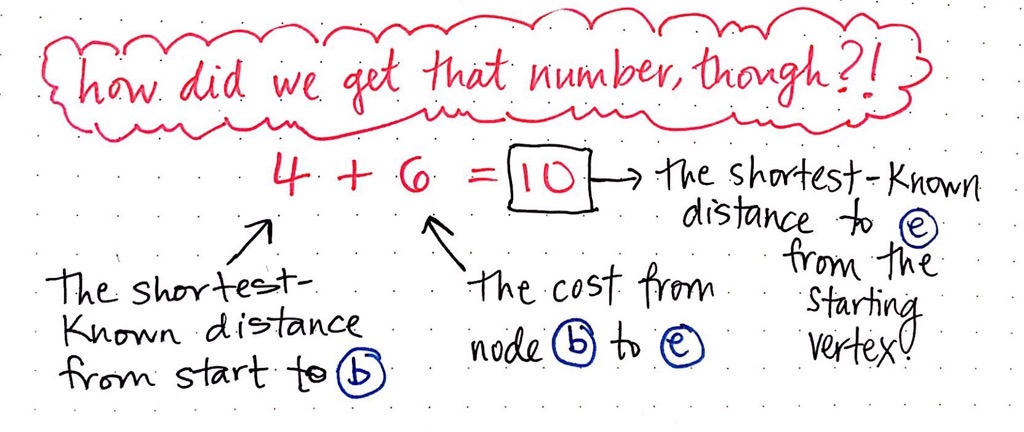 how did we get that number, though?!
4 + 6 = 10 → the shortest-known
distance to e
from the
starting
vertex!
The shortest-
known distance
from start to b
the cost from
node b to e